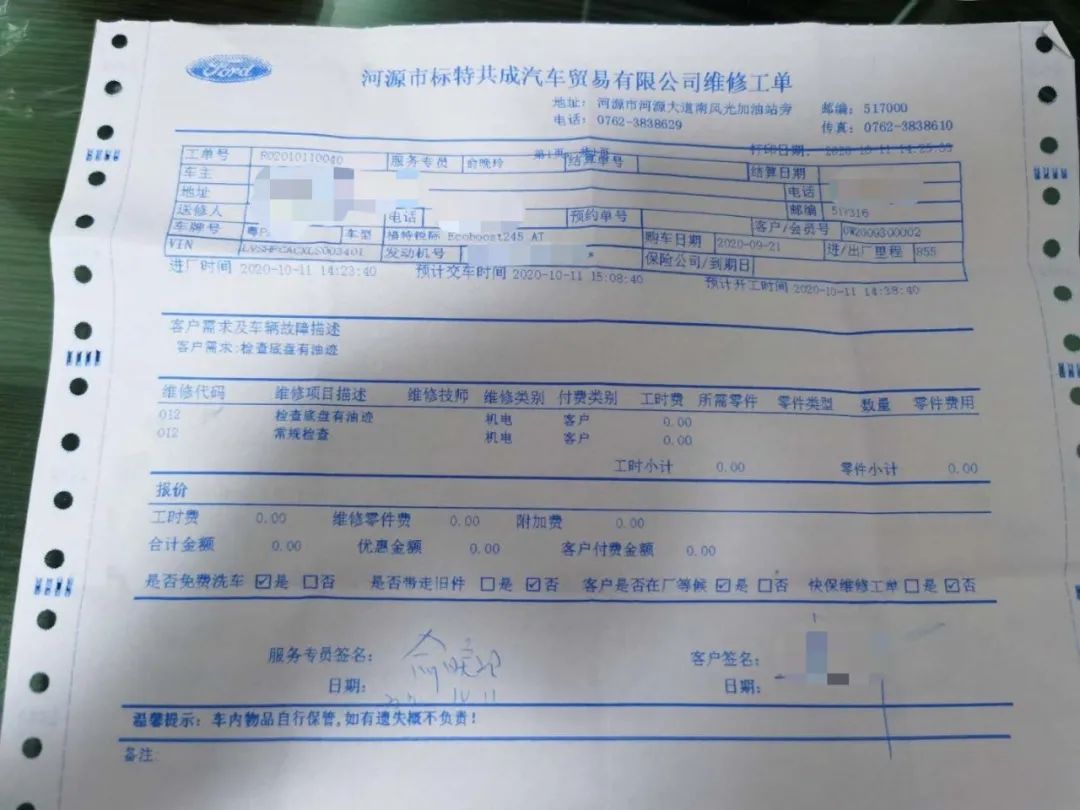 Ford
河源市标特共成汽车贸易有限公司维修工单
地址: 河源市河源大道南风光加油站旁 邮编: 517000
电话: 0762-3838629 传真: 0762-3838610
第1页 共1页 打印日期: 2020-10-11 14:25:33
工单号 RO2010110040 服务专员 俞晚玲 结算单号
车主 结算日期
地址 电话
送修人 电话 预约单号 邮编 517316
车牌号 粤P 车型 福特锐际 Ecoboost245 AT 客户/会员号 OW2009300002
VIN 发动机号 购车日期 2020-09-21 进/出厂里程 855
保险公司/到期日
进厂时间 2020-10-11 14:23:40 预计交车时间 2020-10-11 15:08:40 预计开工时间 2020-10-11 14:38:40
客户需求及车辆故障描述
客户需求:检查底盘有油迹
维修代码 维修项目描述 维修技师 维修类别 付费类别 工时费 所需零件 零件类型 数量 零件费用
012 检查底盘有油迹 机电 客户 0.00
012 常规检查 机电 客户 0.00
工时小计 0.00 零件小计 0.00
报价
工时费 0.00 维修零件费 0.00 附加费 0.00
合计金额 0.00 优惠金额 0.00 客户付费金额 0.00
是否免费洗车 ☑是 ☐否 是否带走旧件 ☐是 ☑否 客户是否在厂等候 ☑是 ☐否 快保维修工单 ☐是 ☑否
服务专员签名: 俞晚玲 客户签名:
日期: 日期:
温馨提示: 车内物品自行保管,如有遗失概不负责!
备注: